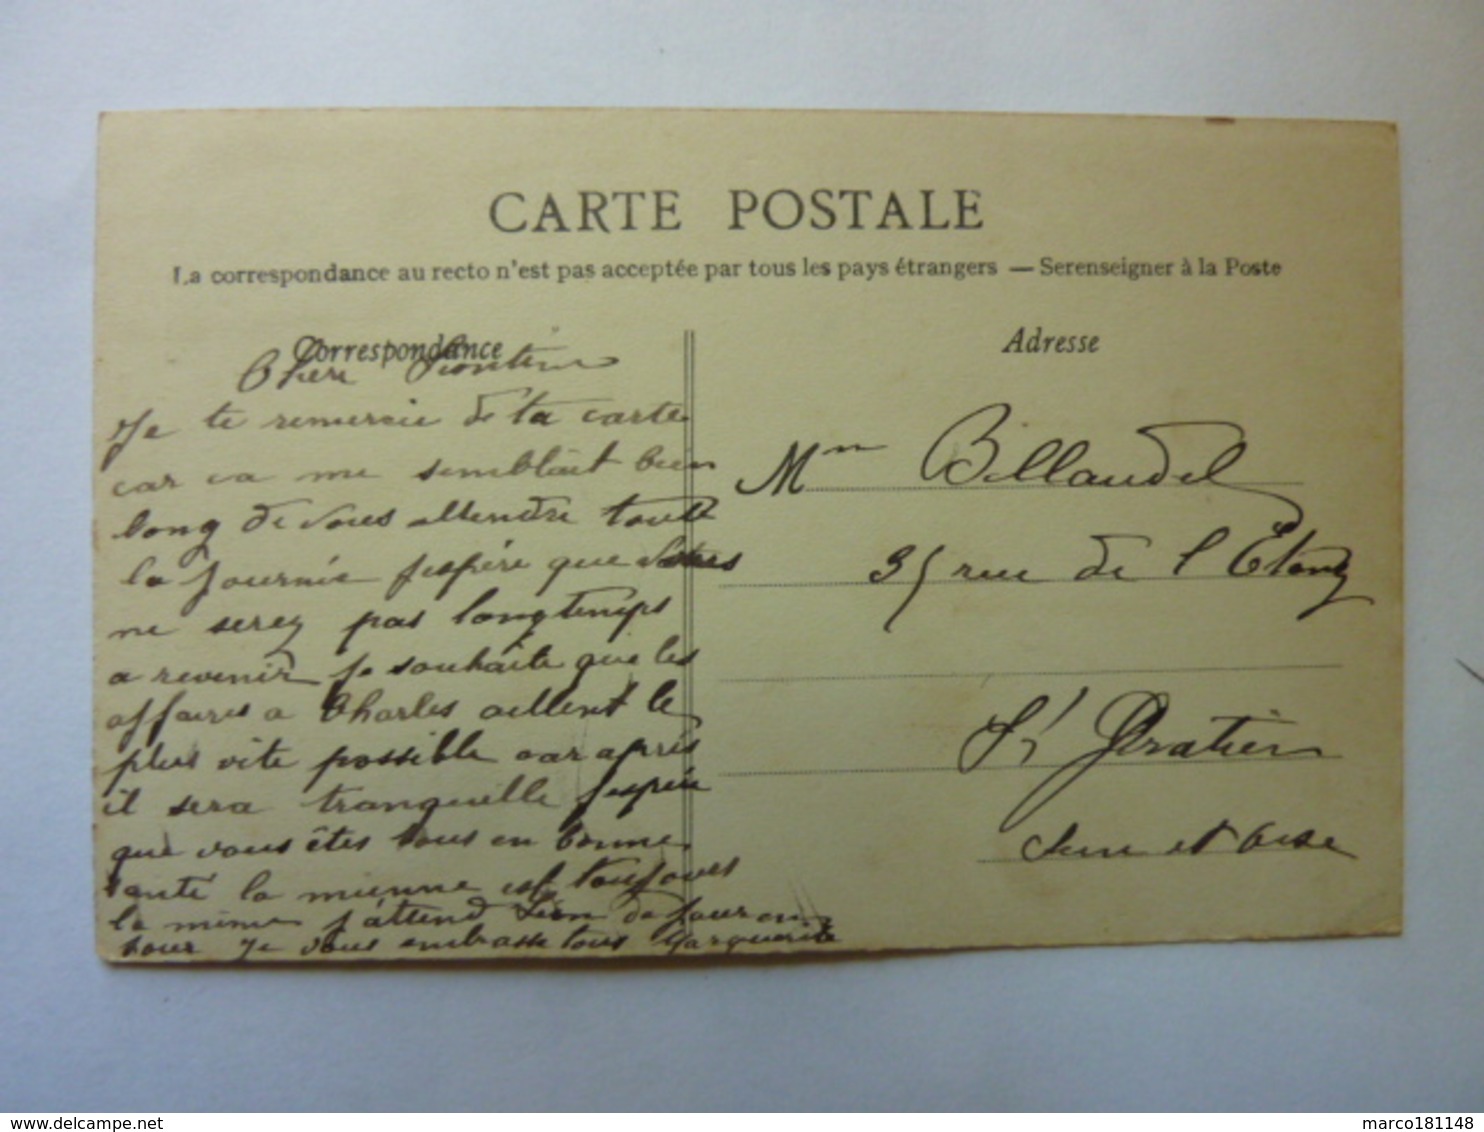 CARTE POSTALE
La correspondance au recto n'est pas acceptée par tous les pays étrangers — Se renseigner à la Poste
Correspondance
Chere
Je te remercie de ta carte
car ca me semblait bien
long de vous attendre toute
la journée j'espère que vous
ne serez pas longtemps
a revenir je souhaite que les
affaires a Charles aillent le
plus vite possible car après
il sera tranquille j'espère
que vous êtes tous en bonne
santé la mienne est toujours
la même j'attend Léon de jour en
jour Je vous embrasse tous Marguerite
Adresse
Mme Billaudel
35 rue de l'Etang
St Gratien
Seine et Oise
delcampe.net
marco181148